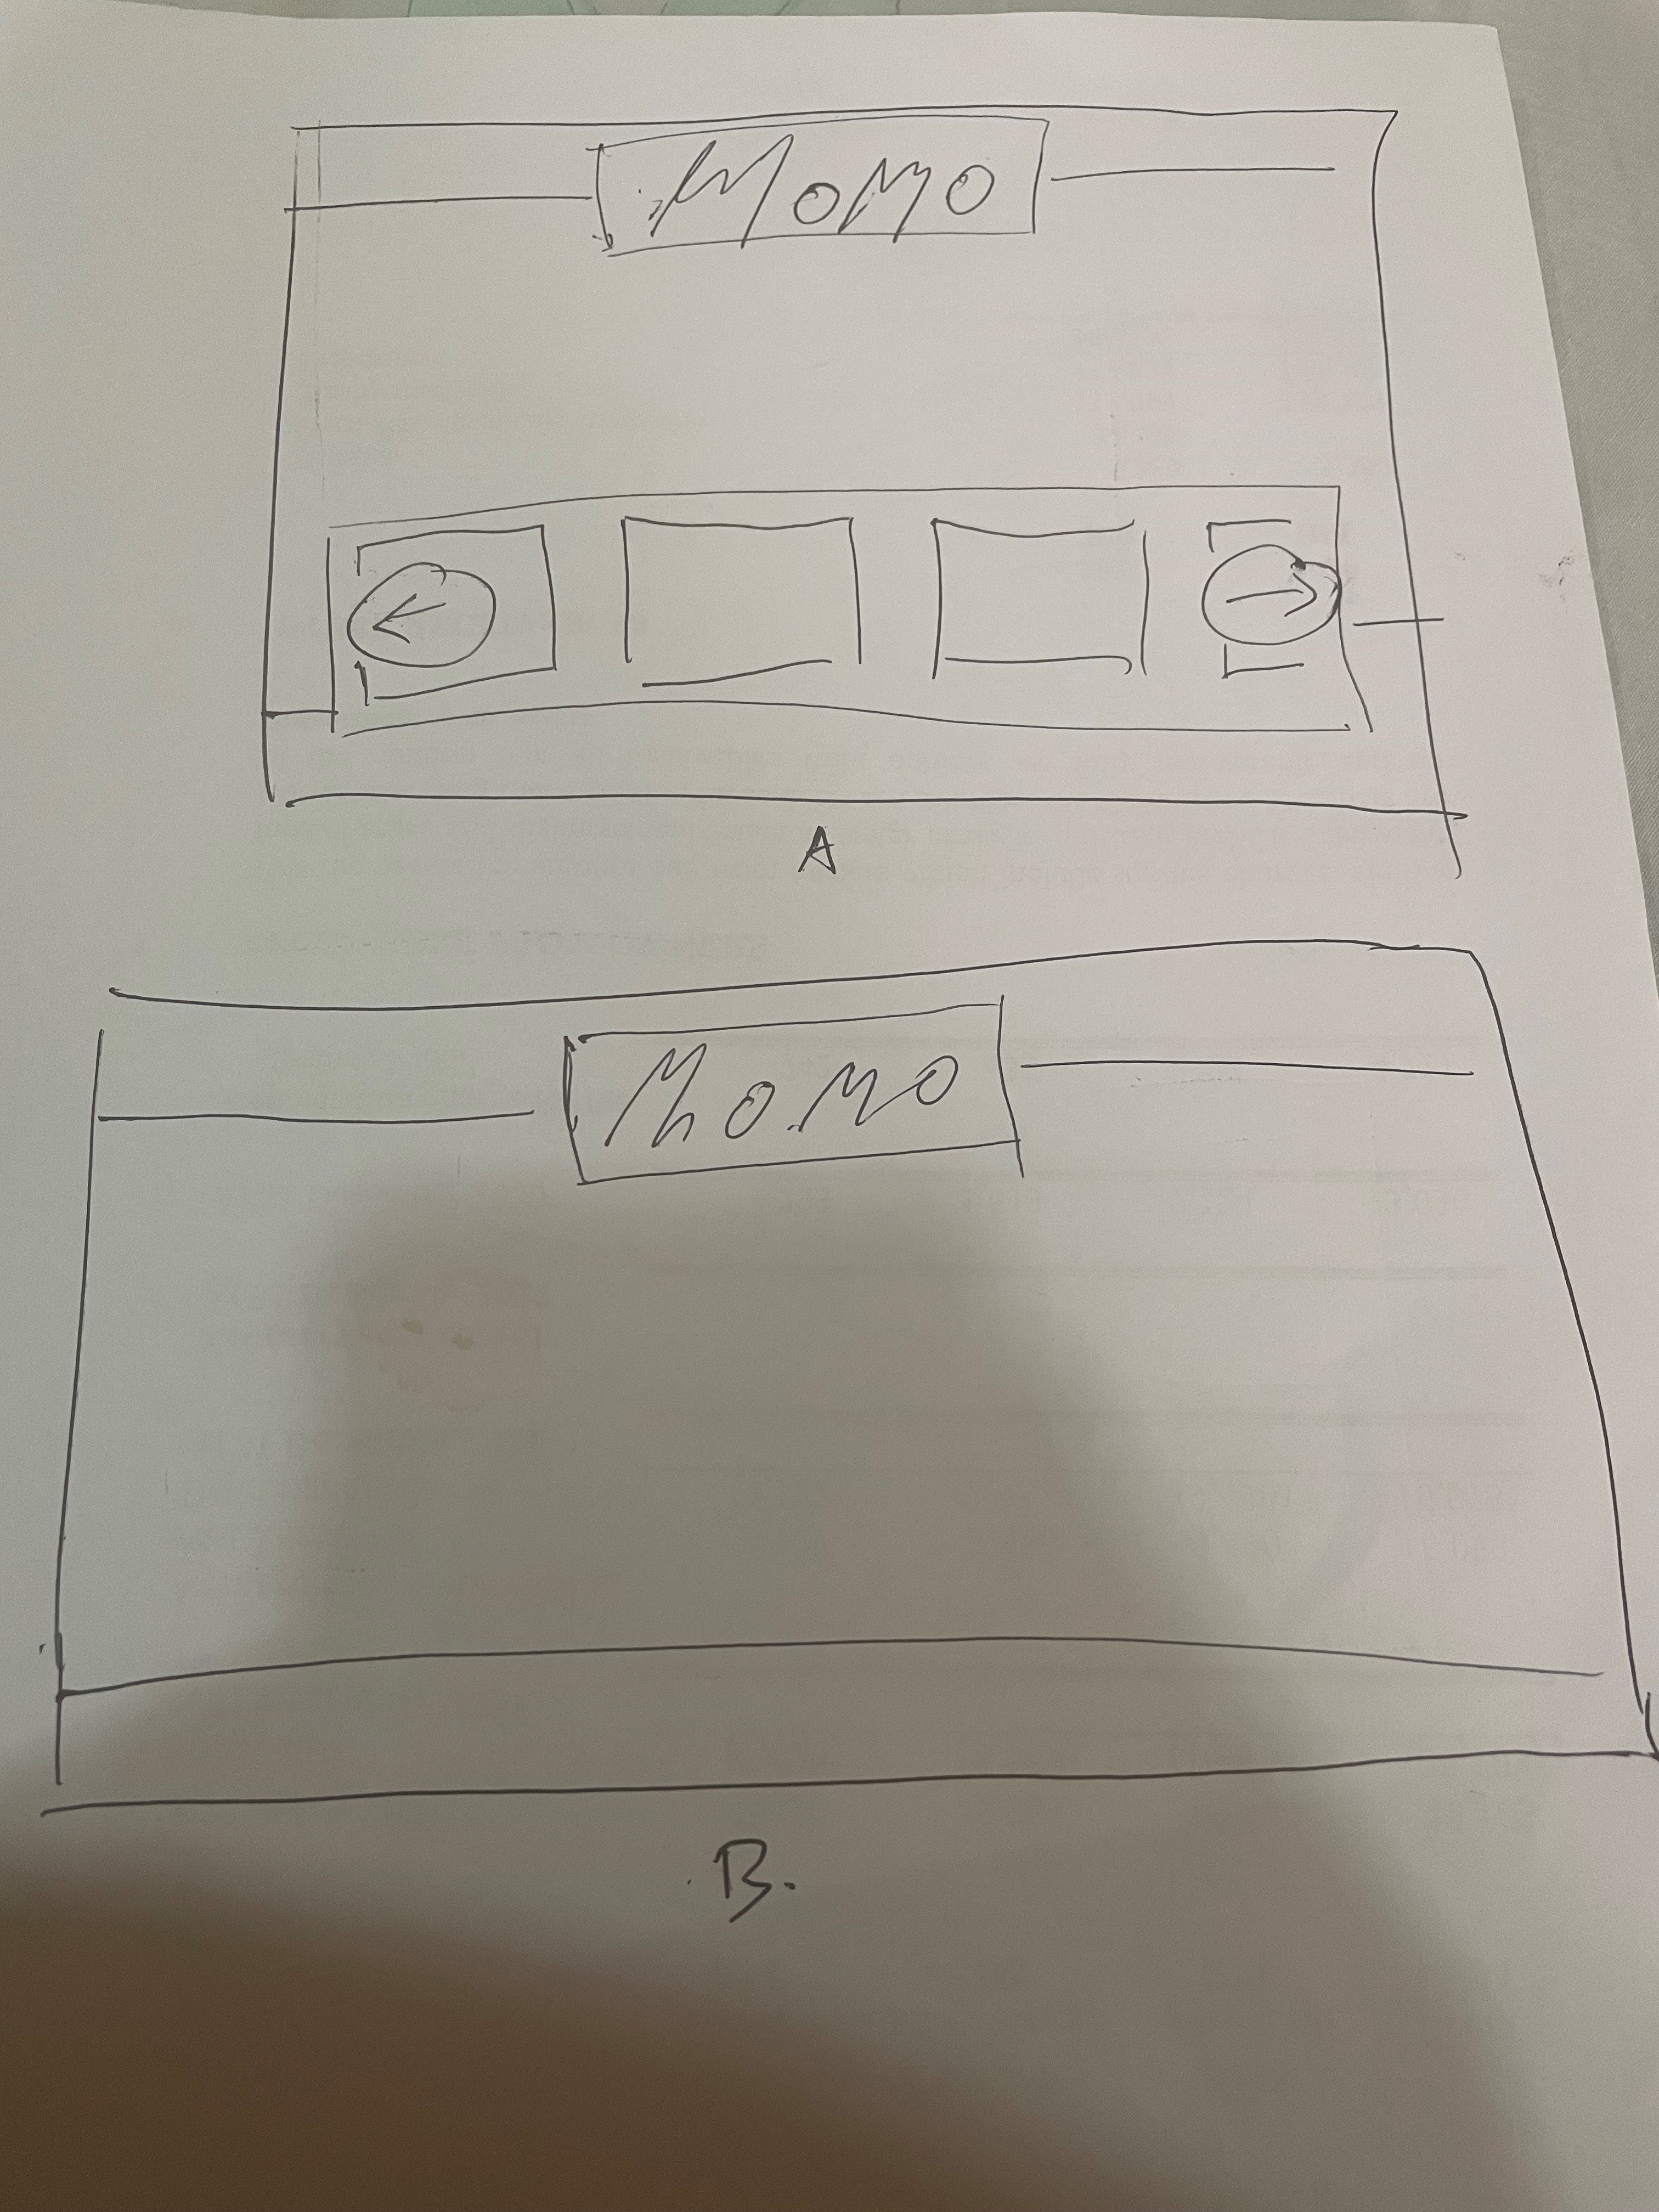 MoMo
A
MoMo
B.